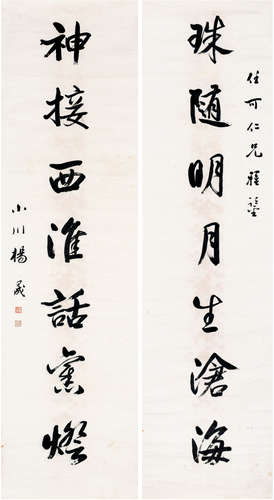 珠随明月生滄海
任可仁兄雅鑒
神接西淮話寒燈
小川楊晟